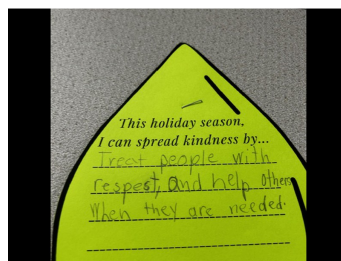 This holiday season,
I can spread kindness by...
Treat people with
respest, and help others
When they are needed.